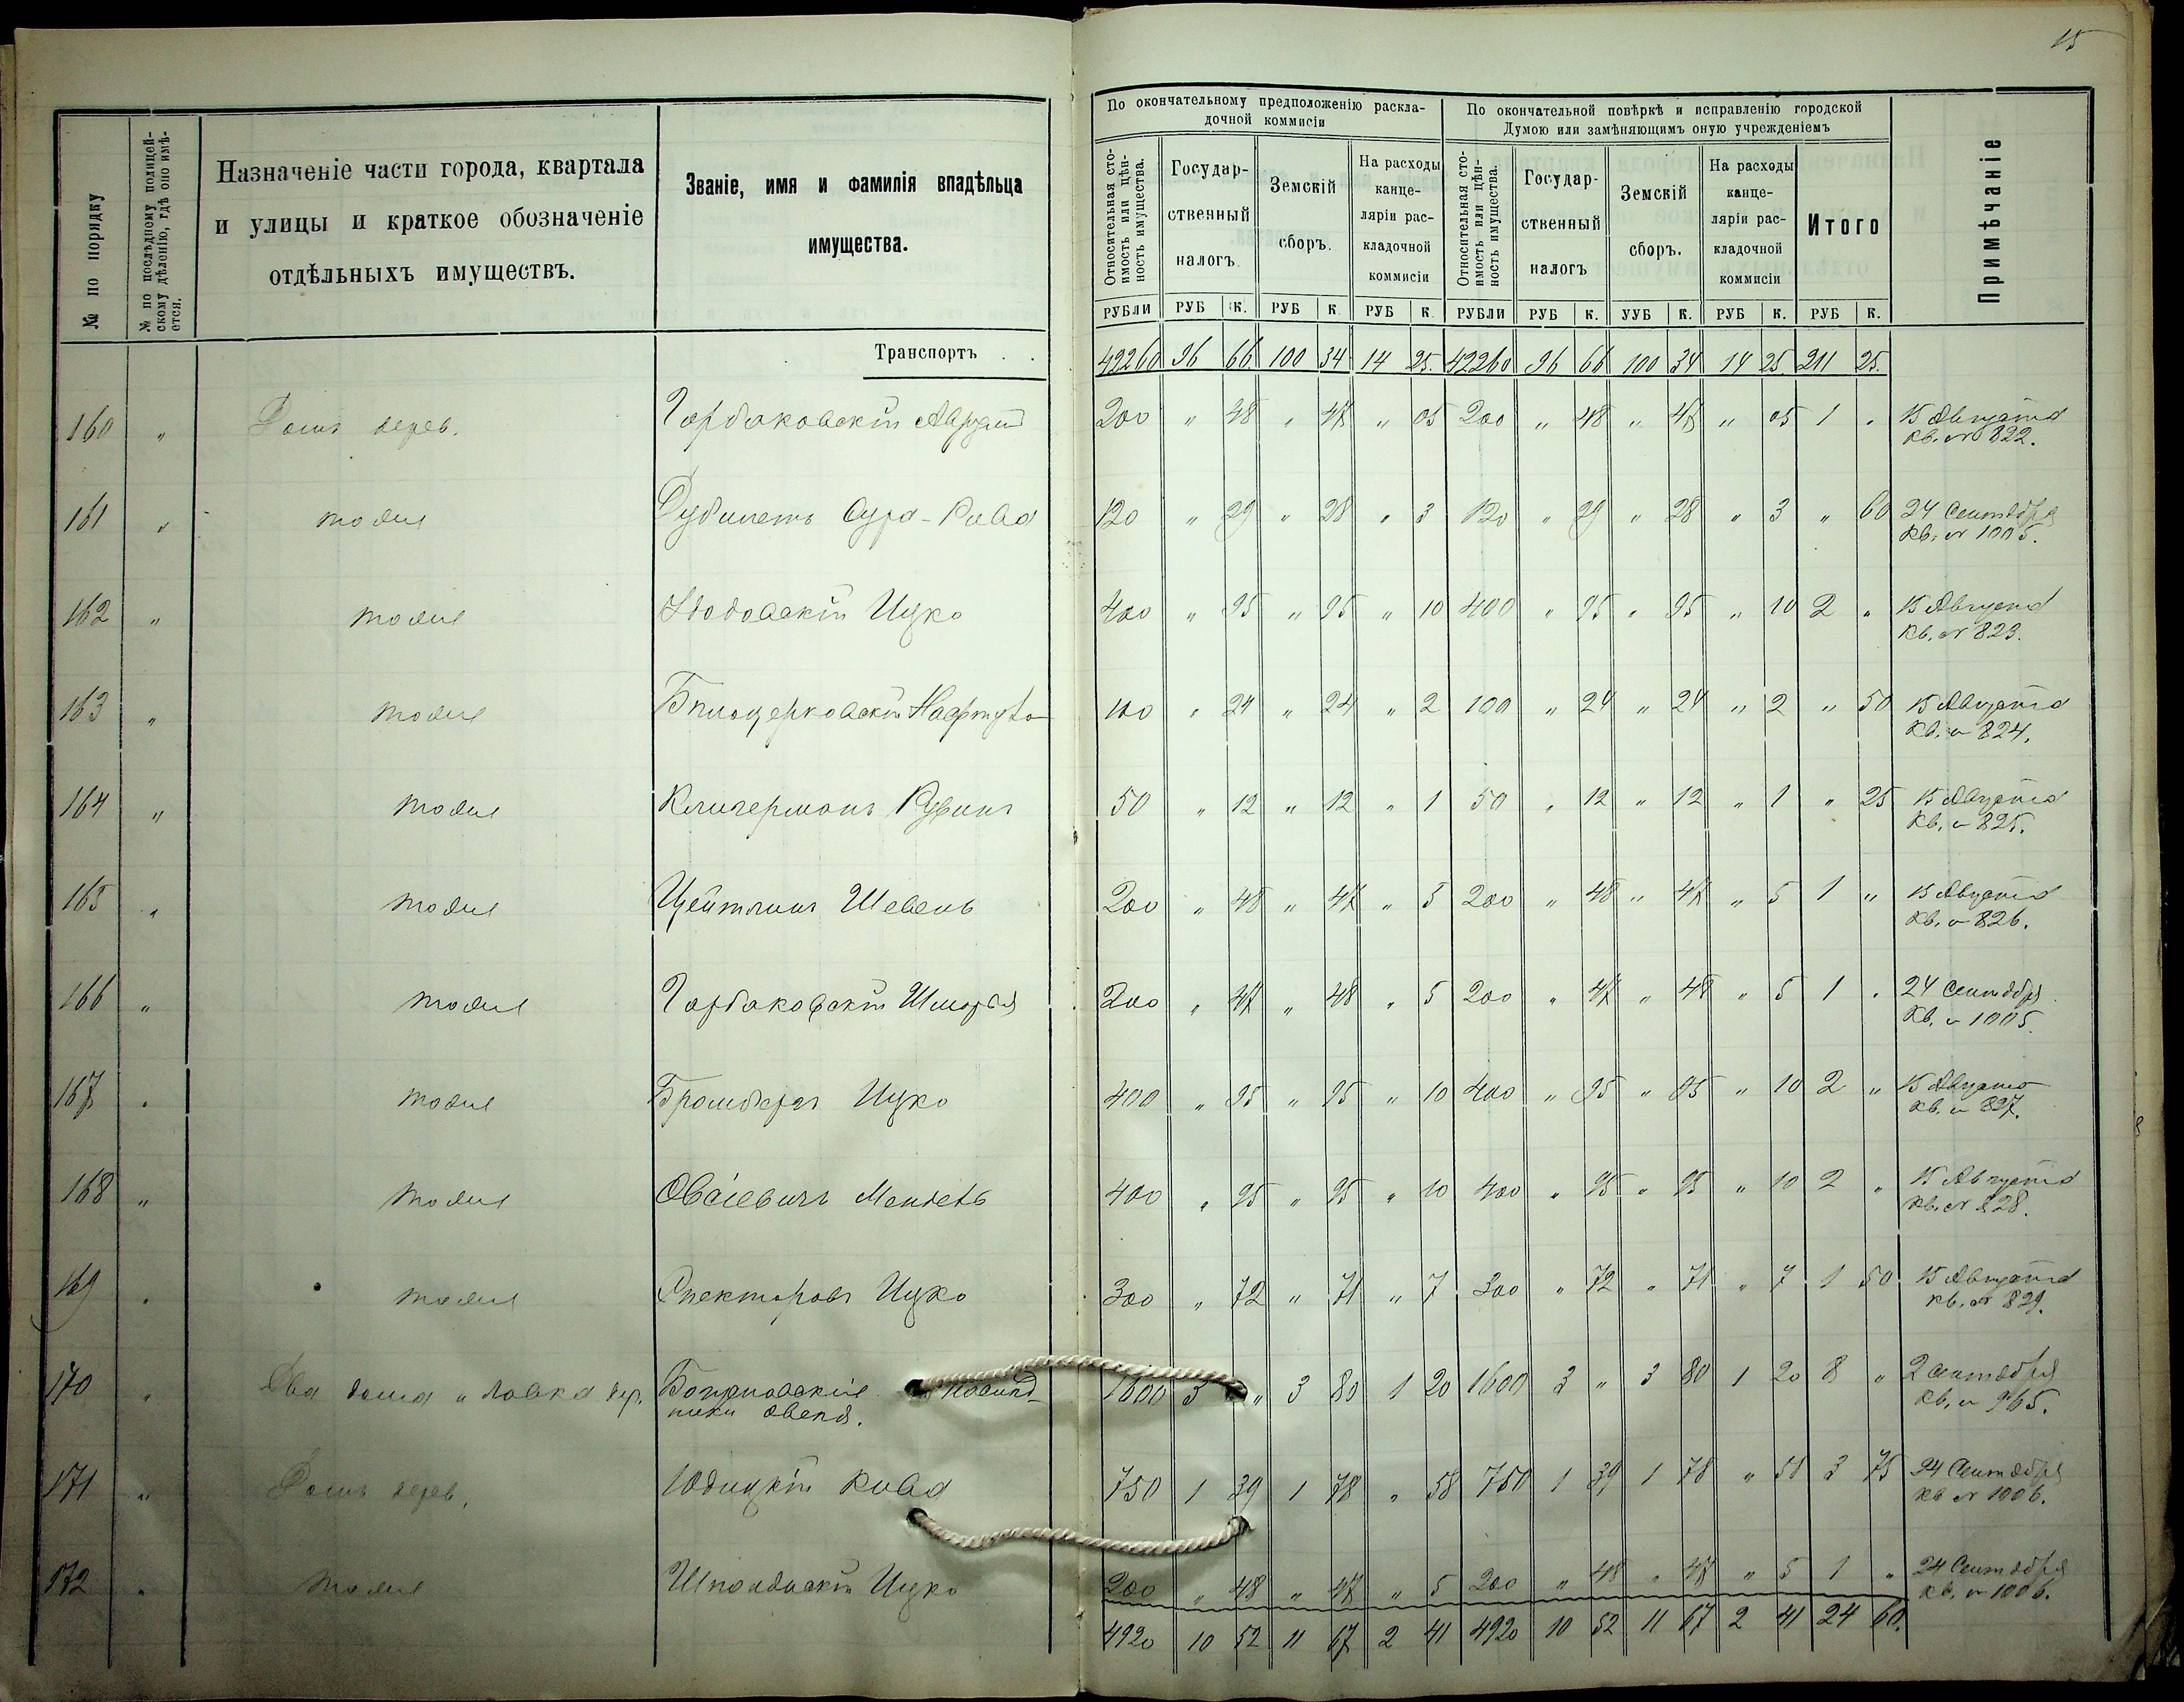 15
№ по порядку
№ по послѣднему полицей-
скому дѣленію, гдѣ оно имѣ-
ется.
Назначеніе части города, квартала
и улицы и краткое обозначеніе
отдѣльныхъ имуществъ.
Званіе, имя и фамилія владѣльца
имущества.
По окончательному предположенію раскла-
дочной коммисіи
По окончательной повѣркѣ и исправленію городской
Думою или замѣняющимъ оную учрежденіемъ
Относительная сто-
имость или цѣн-
ность имущества.
Государ-
ственный
налогъ.
Земскій
сборъ.
На расходы
канце-
ляріи рас-
кладочной
коммисіи
Относительная сто-
имость или цѣн-
ность имущества.
Государ-
ственный
налогъ
Земскій
сборъ.
На расходы
канце-
ляріи рас-
кладочной
коммисіи
Итого
Примѣчаніе
РУБЛИ РУБ К. РУБ К РУБ К РУБЛИ РУБ К. УУБ К. РУБ К. РУБ К.
Транспортъ . . 42260 96 66 100 34 14 25. 42260 96 66 100 34 14 25 211 25.
160 „ Домъ дерев. Горбаковскій 200 „ 48 „ 47 „ 05 200 „ 48 „ 47 „ 05 1 „ 15 Августа
кв. № 822.
161 „ тоже Сура-Рива 120 „ 29 „ 28 „ 3 120 „ 29 „ 28 „ 3 „ 60 24 Сентября
кв. № 1005.
162 „ тоже Ицко 400 „ 95 „ 95 „ 10 400 „ 95 „ 95 „ 10 2 „ 15 Августа
кв. № 823.
163 „ тоже Бѣлоцерковскій 100 „ 24 „ 24 „ 2 100 „ 24 „ 24 „ 2 „ 50 15 Августа
кв. № 824.
164 „ тоже Клигерманъ Рувинъ 50 „ 12 „ 12 „ 1 50 „ 12 „ 12 „ 1 „ 25 15 Августа
кв. № 825.
165 „ тоже Цейтлинъ Шевель 200 „ 48 „ 47 „ 5 200 „ 48 „ 47 „ 5 1 „ 15 Августа
кв. № 826.
166 „ тоже Горбаковскій 200 „ 47 „ 48 „ 5 200 „ 47 „ 48 „ 5 1 „ 24 Сентября
кв. № 1005.
167 „ тоже Бромбергъ Ицко 400 „ 95 „ 95 „ 10 400 „ 95 „ 95 „ 10 2 „ 15 Августа
кв. № 827.
168 „ тоже Овсіевичъ Мендель 400 „ 95 „ 95 „ 10 400 „ 95 „ 95 „ 10 2 „ 15 Августа
кв. № 828.
169 „ тоже Спекторовъ Ицко 300 „ 72 „ 71 „ 7 300 „ 72 „ 71 „ 7 1 50 15 Августа
кв. № 829.
170 „ Два дома и лавка дер. 1600 3 „ 3 80 1 20 1600 3 „ 3 80 1 20 8 „ 2 Сентября
кв. № 965.
171 „ Домъ дерев. Юдицкій Рива 750 1 39 1 78 „ 58 750 1 39 1 78 „ 58 3 75 24 Сентября
кв № 1006.
172 „ тоже Ицко 200 „ 48 „ 47 „ 5 200 „ 48 „ 47 „ 5 1 „ 24 Сентября
кв. № 1006.
4920 10 52 11 67 2 41 4920 10 52 11 67 2 41 24 60.